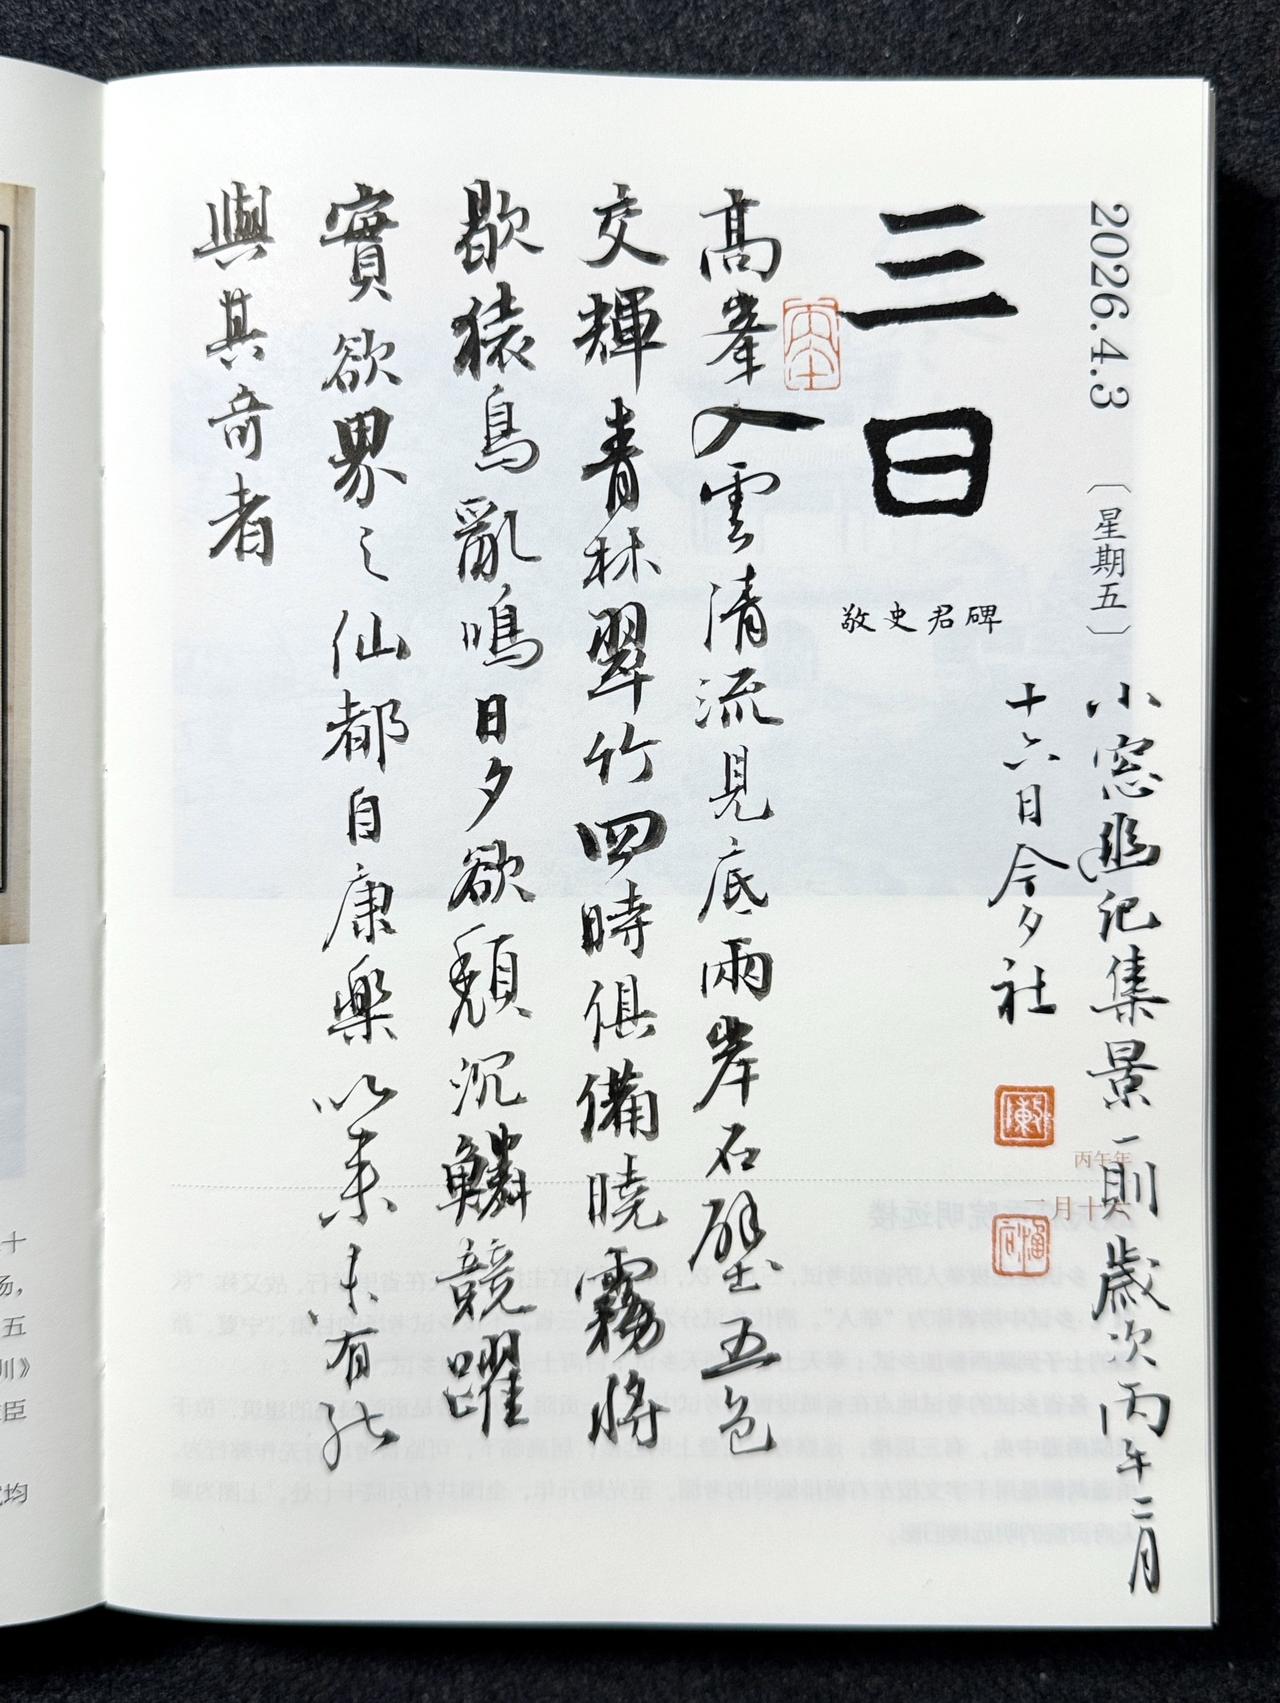 2026.4.3
〔星期五〕
三日
敬史君碑
小窓幽記集景一則歲次丙午二月
十六日今夕社
丙午年
二月十六
高峯入雲清流見底兩岸石壁五色
交輝青林翠竹四時俱備曉霧將
歇猿鳥亂鳴日夕欲頹沉鱗競躍
實欲界之仙都自康樂以來未有能
與其奇者